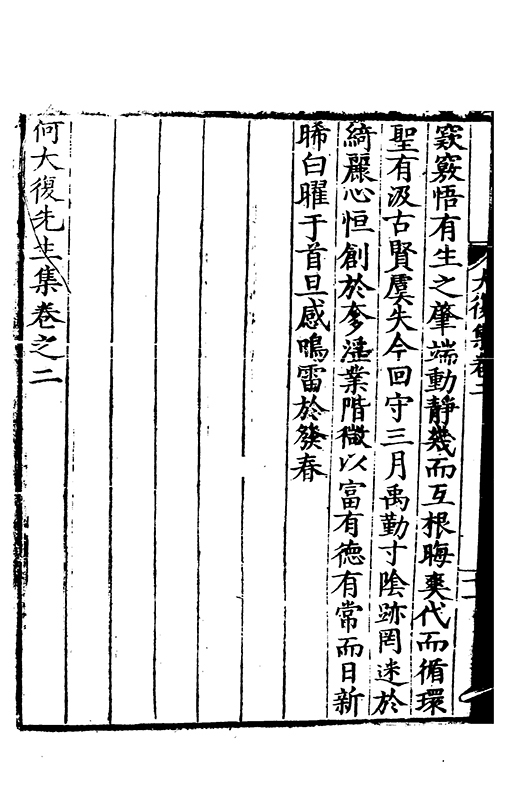 大復集卷二
窽竅悟有生之肇端動靜幾而互根晦爽代而循環
聖有汲古賢虞失今回守三月禹勤寸陰跡罔迷於
綺麗心恒創於奓淫業階微以富有德有常而日新
晞白曜于首旦感鳴雷於發春
何大復先生集卷之二